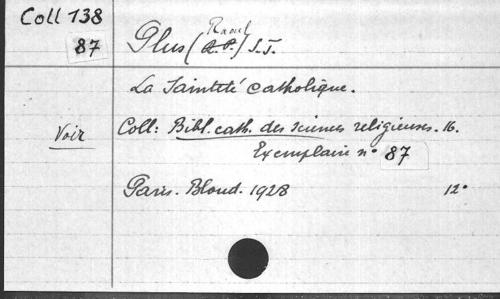 Coll 138
87
Raoul
Plus (R.P.) S.J.
La Sainteté catholique.
Voir Coll: Bibl. cath. des sciences religieuses. 16.
Exemplaire nº 87
Paris. Bloud. 1928 12º